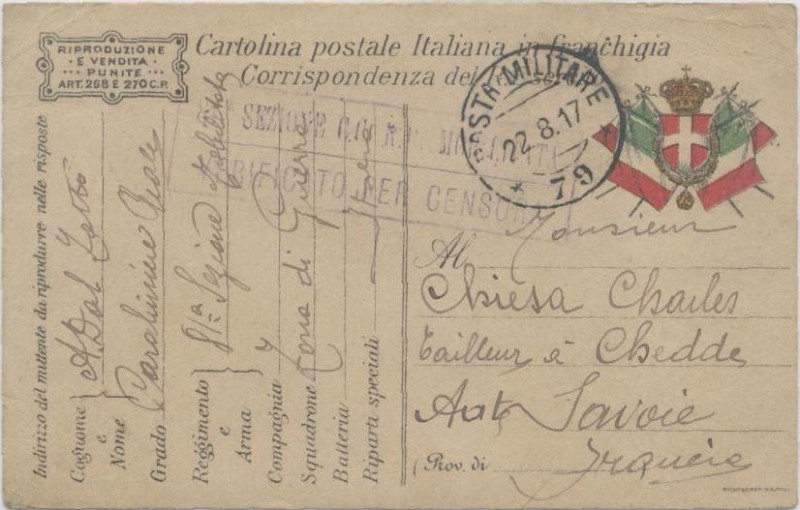 RIPRODUZIONE
E VENDITA
PUNITE
ART. 268 E 270 C.P.
Cartolina postale Italiana in franchigia
Corrispondenza del
POSTA MILITARE
22.8.17
79
SEZIONE
VERIFICATO PER CENSURA
Indirizzo del mittente da riprodurre nelle risposte
Cognome e Nome } A. Dal Zotto
Grado Carabiniere Reale
Reggimento e Arma } 81ª Sezione
Compagnia
Squadrone Zona di Guerra
Batteria
Riparti speciali
Monsieur
Al Chiesa Charles
Tailleur à Chedde
Aut Savoie
(Prov. di